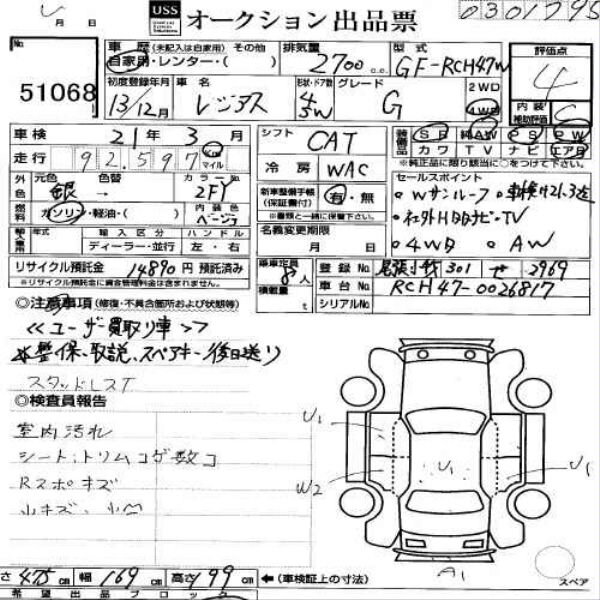 月 日 USS オークション出品票 0301795
No. 51068
車歴 (未記入は自家用) その他
自家用・レンター・( )
排気量 2700 c.c.
型式 GF-RCH47W
評価点 4
初度登録年月 13/12月
車名 レジアス
形状・ドア数 4/5W
グレード G
2WD
4WD
内装 補助評価 C
車検 21年3月
シフト CAT
装備品 SR 純AW PS PW
カワ TV ナビ エアB
※純正品に限り該当に○をつけて下さい。
走行 92,597 Km マイル
冷房 WAC
外色 元色 銀 → 色替
カラーNo. 2FY
燃料 ガソリン・軽油・( )
内装色 ベージュ
新車整備手帳 (保証書付) 有・無
※書類と一緒に保管下さい。
セールスポイント
・Wサンルーフ ・車検付21.3迄
・社外HDDナビ・TV
・4WD ・AW
輸入車 年式 輸入区分 ハンドル
ディーラー・並行 左・右
名義変更期限 月 日
リサイクル預託金 14890円 預託済み
※リサイクル預託金に資金管理料金は含まれます。
乗車定員 8人
積載量 t
登録No. 尾張小牧 301 せ 2969
車台No. RCH47-0026817
シリアルNo.
◎注意事項 (修復・不具合箇所および状態等)
<<ユーザー買取り車>>
※整保、取説、スペアキー後日送り
スタッドレスT
◎検査員報告
室内汚れ
シート・トリムコゲ数コ
Rスポキズ
小キズ、小凹
U1
W2
U1
U1
A1
スペア
さ 475cm 幅 169cm 高さ 199cm ←(車検証上の寸法)
希望出品ブロック